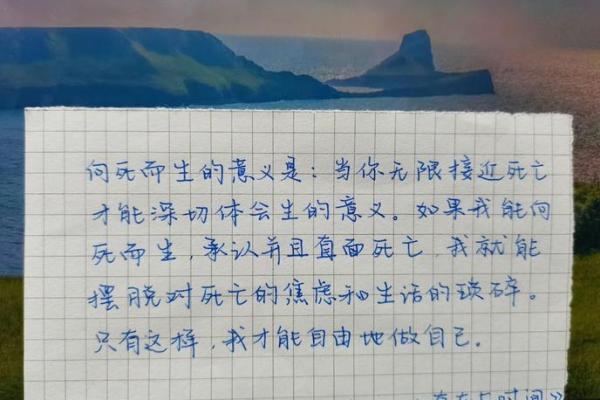 向死而生的意义是：当你无限接近死亡
才能深切体会生的意义。如果我能向
死而生，承认并且直面死亡，我就能
摆脱对死亡的焦虑和生活的琐碎。
只有这样，我才能自由地做自己.
时间》